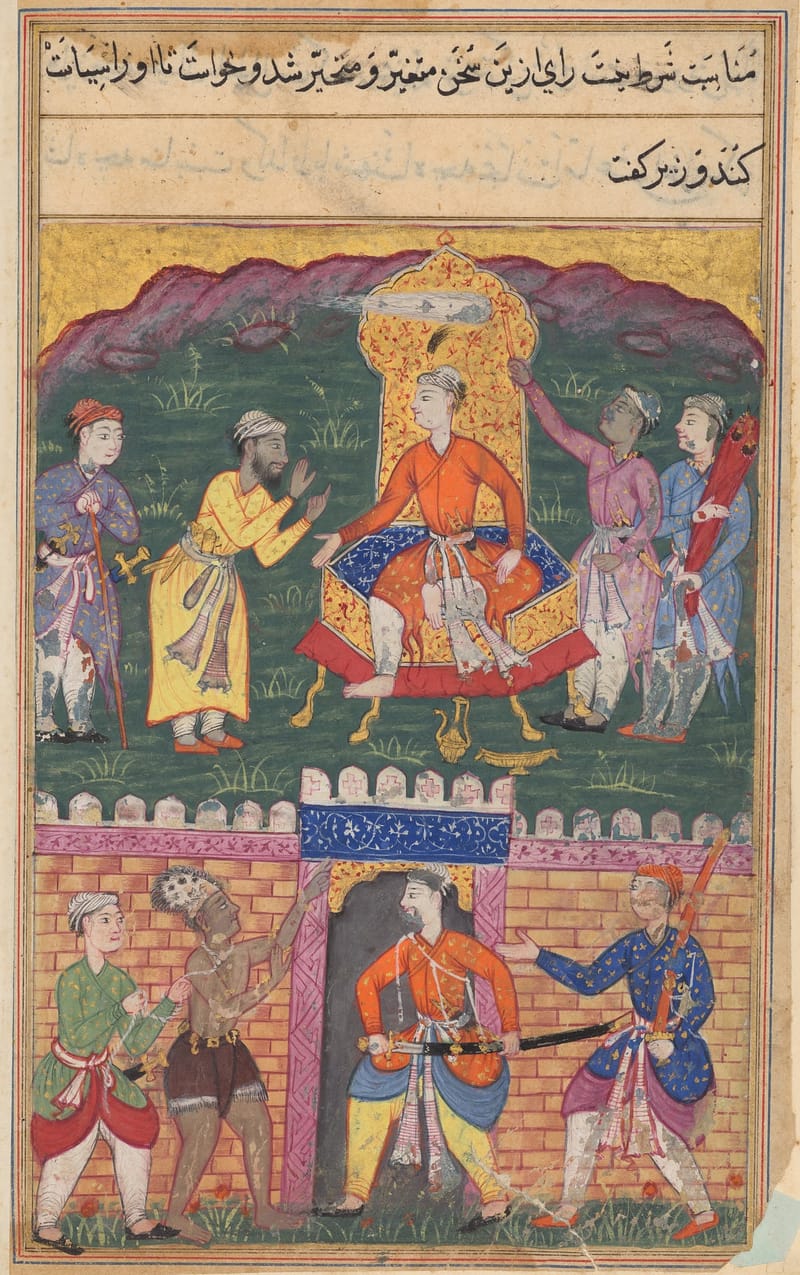 مناسبت شرط نیت رای ازین سخن متغیر و متحیر شد و خواست تا او را سیاست
کند وزیر گفت